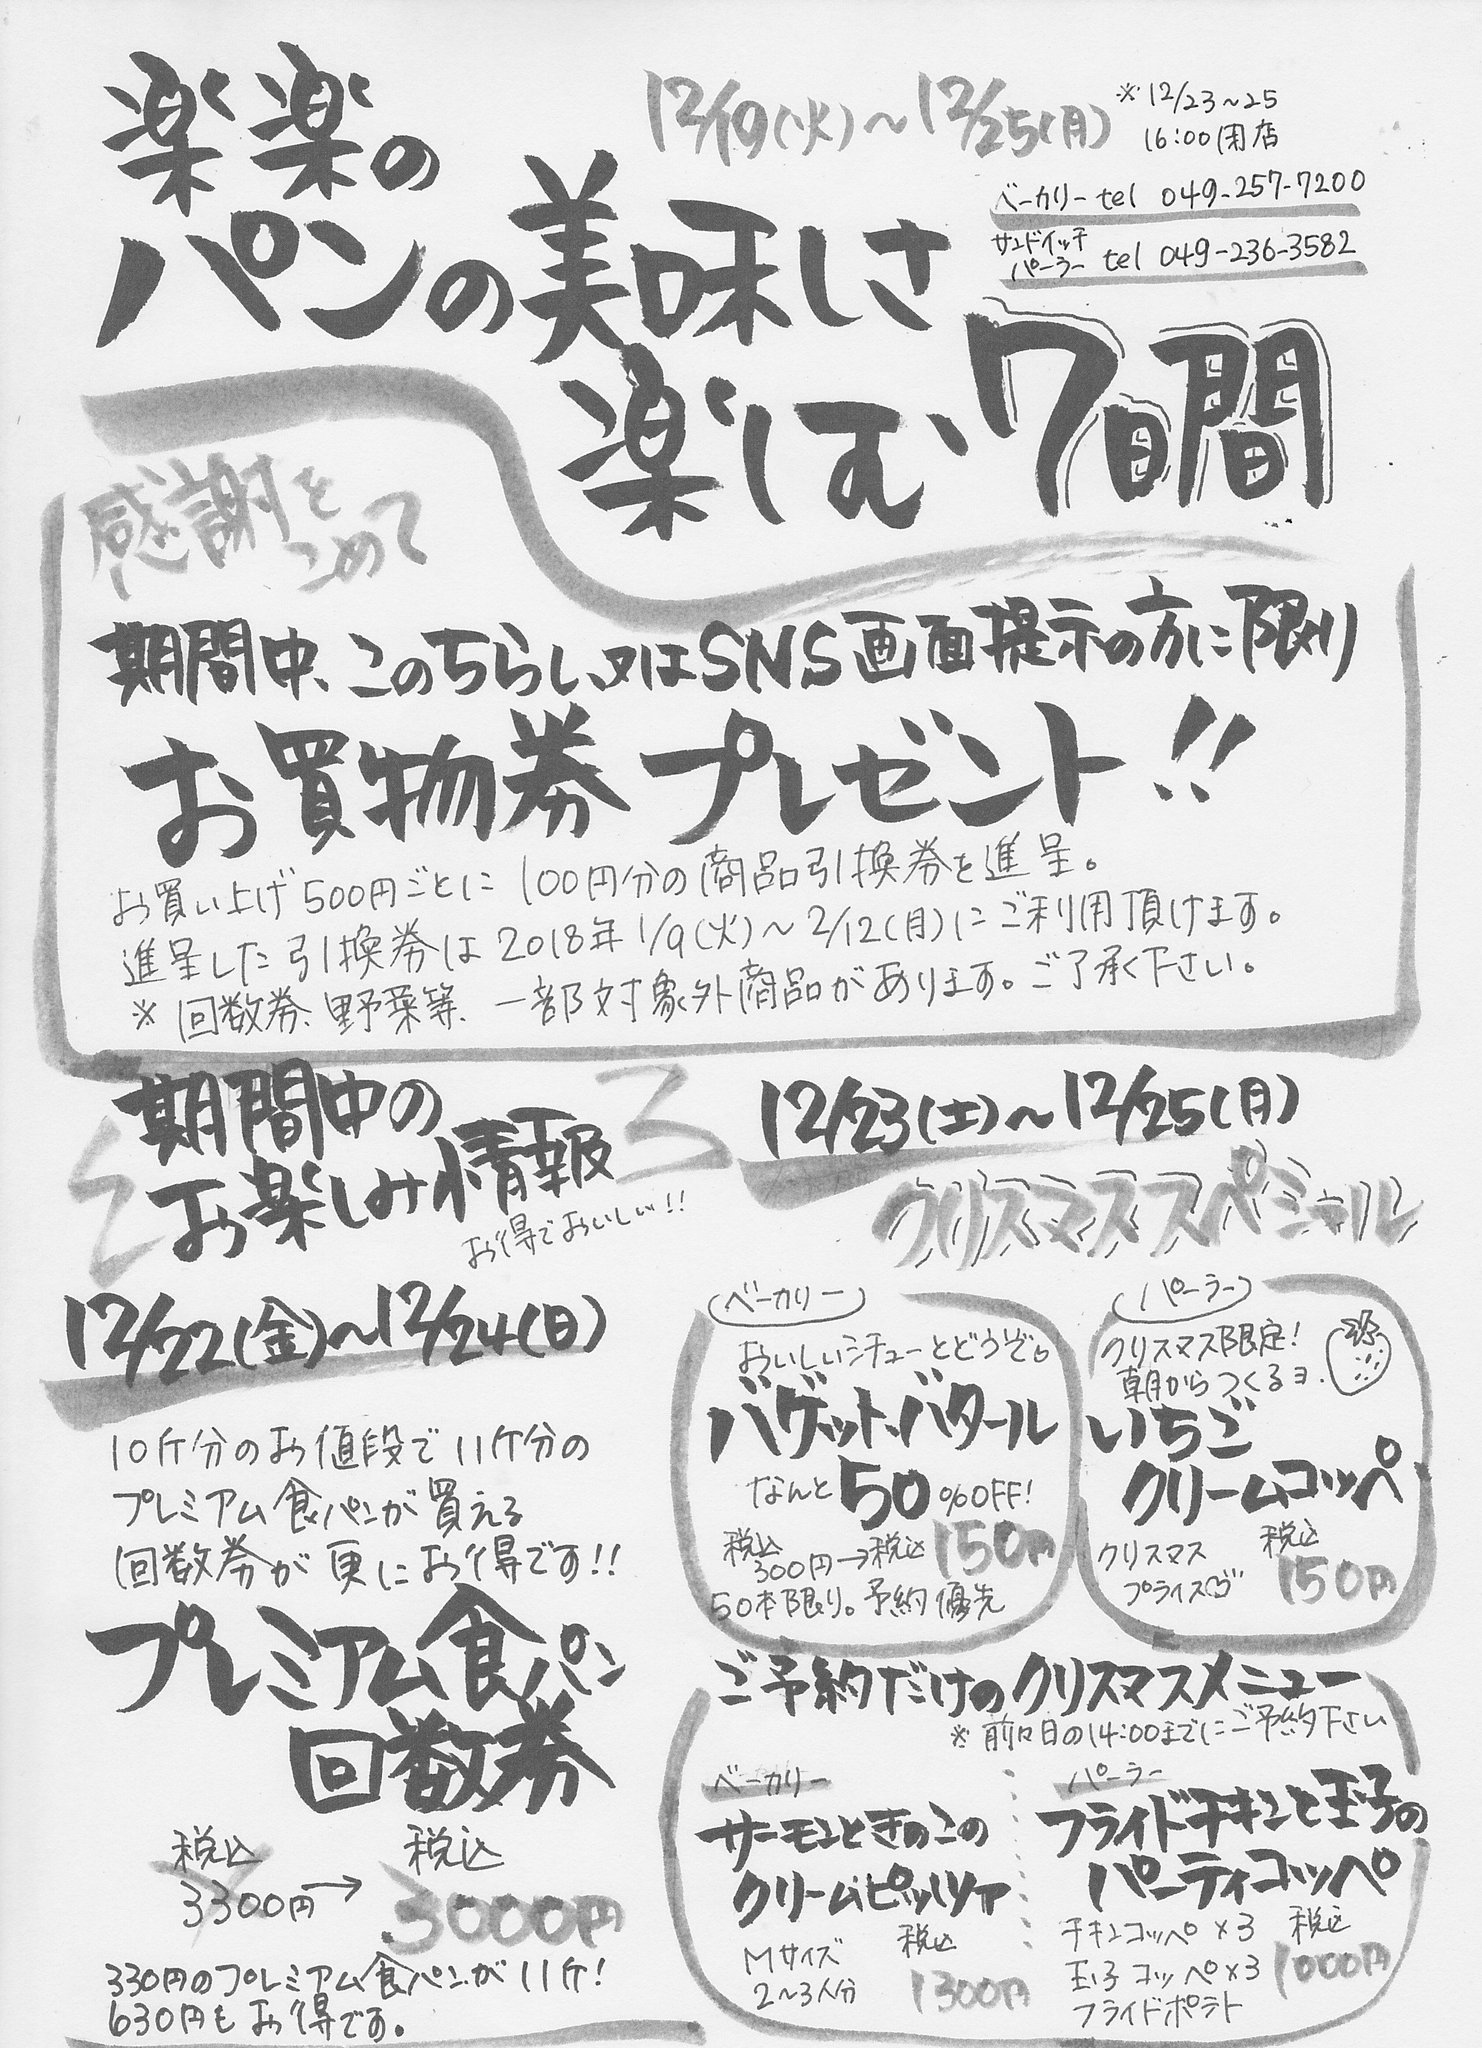 楽楽の
パンの美味しさ
楽しむ7日間
12/19(火)～12/25(月)
※12/23～25
16:00閉店
ベーカリー tel 049-257-7200
サンドイッチ
パーラー tel 049-236-3582
感謝を
こめて
期間中、このちらし、又はSNS画面提示の方に限り
お買物券プレゼント!!
お買い上げ500円ごとに100円分の商品引換券を進呈。
進呈した引換券は2018年1/9(火)～2/12(月)にご利用頂けます。
※回数券、野菜等、一部対象外商品があります。ご了承く下さい。
期間中の
お楽しみ情報
お得でおいしい!!
12/22(金)～12/24(日)
10斤分のお値段で11斤分の
プレミアム食パンが買える
回数券が更にお得です!!
プレミアム食パン
回数券
税込 税込
3300円→3000円
330円のプレミアム食パンが11斤!
630円もお得です。
12/23(土)～12/25(月)
クリスマススペシャル
ベーカリー
おいしいシチューとどうぞ。
バゲット・バタール
なんと50%OFF!
税込300円→税込150円
50本限り。予約優先
パーラー
クリスマス限定!
朝からつくるヨ.
いちご
クリームコッペ
クリスマス
プライス
税込
150円
ご予約だけのクリスマスメニュー
※前々日の14:00までにご予約下さい
ベーカリー
サーモンときのこの
クリームピッツァ
Mサイズ
2～3人分
税込
1300円
パーラー
フライドチキンと玉子の
パーティコッペ
チキンコッペ×3
玉子コッペ×3
フライドポテト
税込
1000円